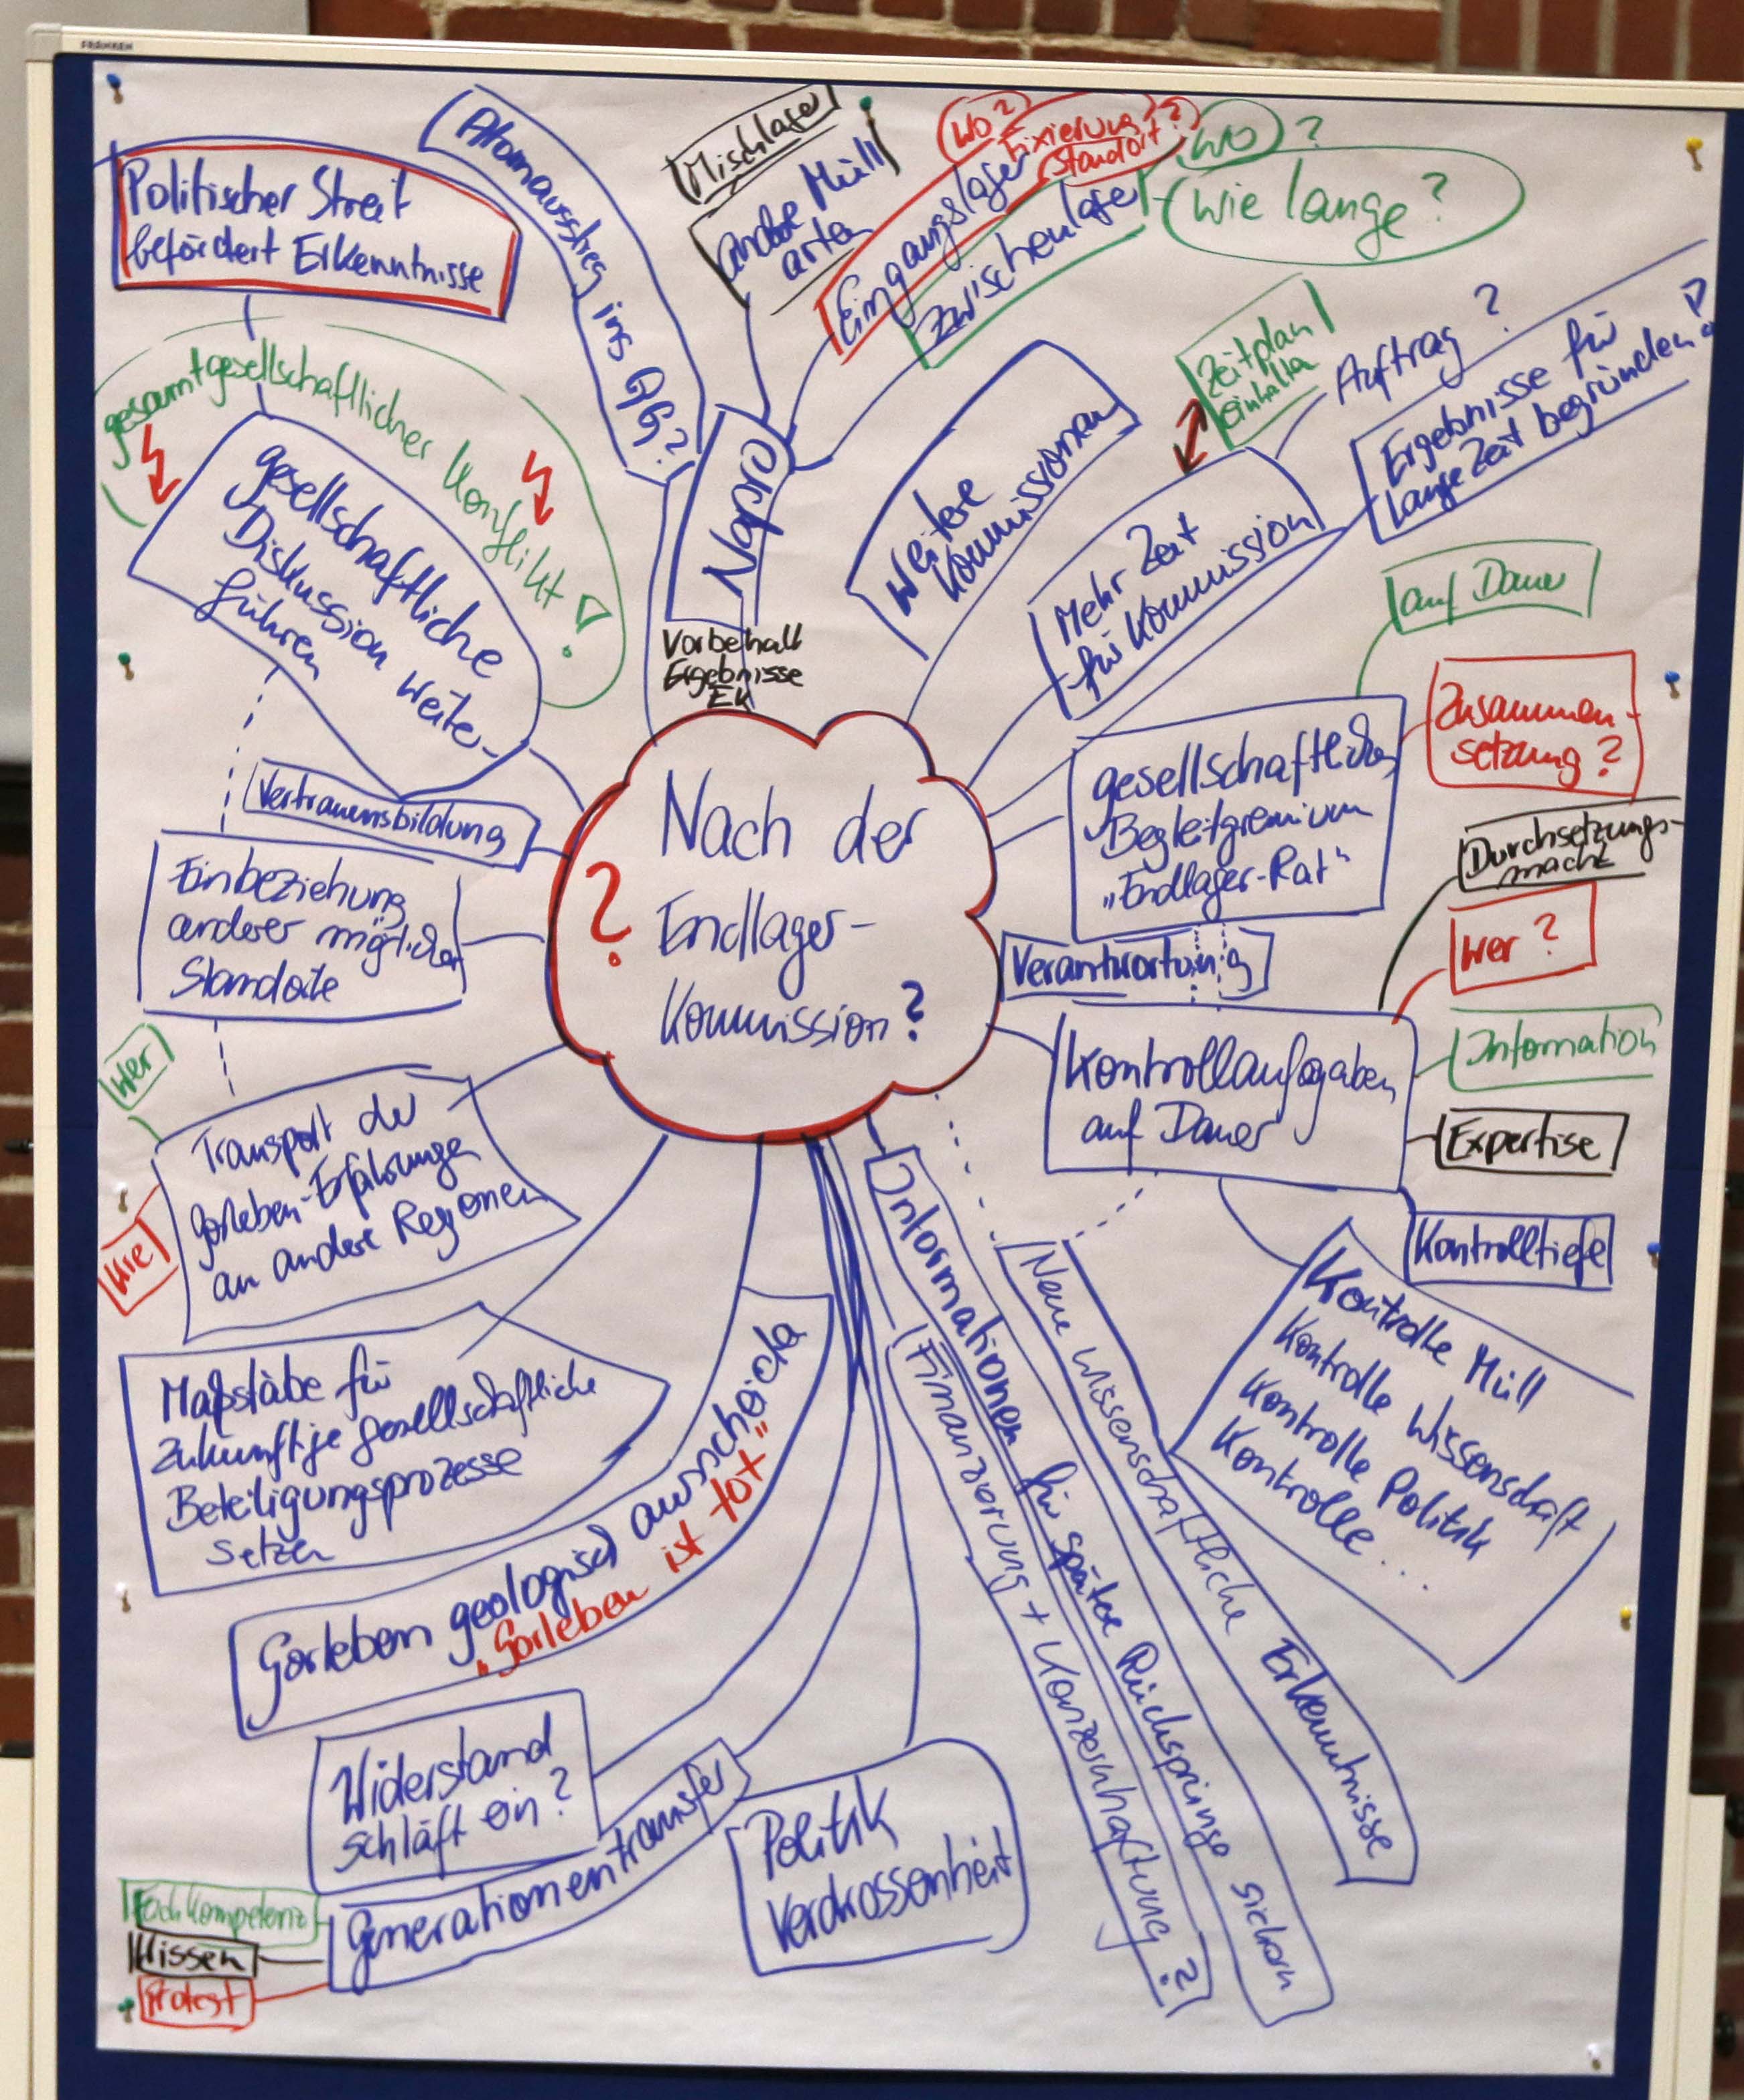 FRANKEN
Politischer Streit
befördert Erkenntnisse
gesamtgesellschaftlicher Konflikt!
gesellschaftliche
Diskussion weiter-
führen
Atomausstieg ins GG?
Mischlager
andere Müll
arten
Wo?
Fixierung?
Standort?
Eingangslager
Zwischenlager
WO?
Wie lange?
NaPro
Vorbehalt
Ergebnisse
EK
Weitere
Kommissionen
Zeitplan
einhalten
Auftrag?
Mehr Zeit
für Kommission
Ergebnisse für
lange Zeit begründen!
auf Dauer
Zusammen-
setzung?
gesellschaftliches
Begleitgremium
„Endlager-Rat“
Verantwortung
Durchsetzungs-
macht
Wer?
Information
Expertise
Kontrolltiefe
Kontrollaufgaben
auf Dauer
Kontrolle Müll
Kontrolle Wissenschaft
Kontrolle Politik
Kontrolle...
Nach der
Endlager-
Kommission?
?
Vertrauensbildung
Einbeziehung
anderer möglicher
Standorte
Wer
Wie
Transport der
Gorleben-Erfahrungen
an andere Regionen
Maßstäbe für
zukünftige gesellschaftliche
Beteiligungsprozesse
setzen
Gorleben geologisch ausscheiden
„Gorleben ist tot“
Widerstand
schläft ein?
Generationentransfer
Fachkompetenz
Wissen
Protest
Politik
Verdrossenheit
Finanzierung + Konzernhaftung?
Informationen für spätere Rücksprünge sichern
Neue wissenschaftliche Erkenntnisse